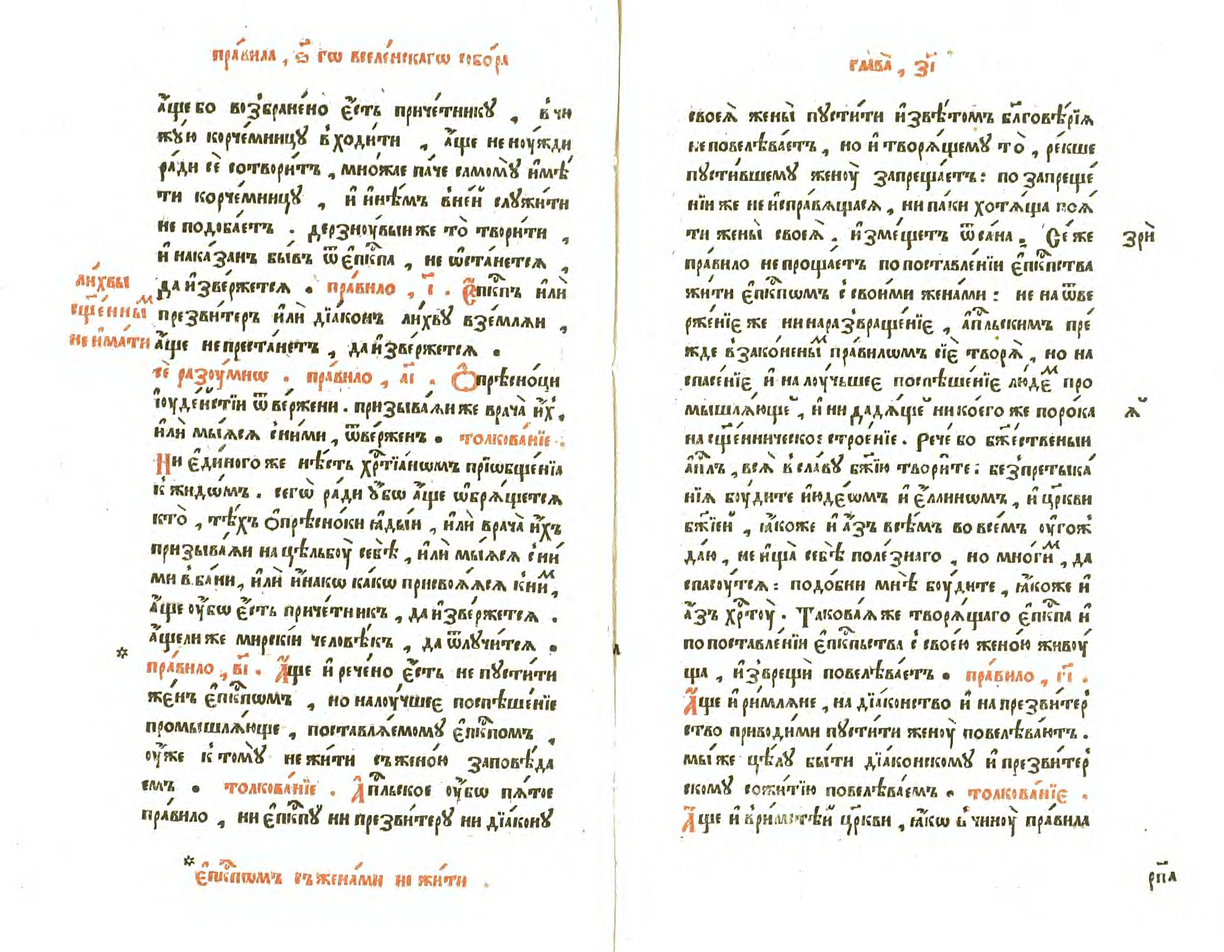 пра́вила , ѕ҃ гѡ вселе́нскагѡ собо́ра
а҆́ще бо возбране́но є҆́сть приче́тникꙋ , в чю
жꙋ́ю корче́мницꙋ в ходи́ти , а҆́ще не но́ужди
ра́ди сѐ сотвори́тъ , мно́жае па́че самомꙋ̀ и҆мѣ́
ти корче́мницꙋ , и҆ и҆нѣ́мъ в не́й слꙋжи́ти
не подоба́етъ . дерзноувы́и же то̀ твори́ти ,
и҆ нака́занъ бы́въ ѿ є҆пⷭ҇кпа , не ѡ҆ста́нетсѧ ,
да и҆зве́ржетсѧ . пра́вило , і҃ . Є҆пⷭ҇кпъ и҆лѝ
ли́хвы
сщ҃е́нныⷨ
не и҆ма́ти
презви́теръ и҆лѝ дїа́конъ ли́хвꙋ взе́млѧи ,
а҆́ще не преста́нетъ , да и҆зве́ржетсѧ .
сѐ разоу́мно . пра́вило , а҃і . Ѻ҆прѣсно́ци
і҆оуде́йстїи ѿве́ржени . призыва́ѧи же врача̀ и҆́х ,
и҆лѝ мы́ѧсѧ с ни́ми , ѿве́рженъ . толкова́нїе .
Ни є҆ди́ного же нѣ́сть хрⷭ҇тїа́нѡмъ прїѡбще́нїѧ
к жидѡ́мъ . сегѡ̀ ра́ди ᲂу҆́бѡ а҆́ще ѡ҆брѧ́щетсѧ
кто̀ , тѣ́хъ ѻ҆прѣсно́ки ꙗ҆ды́и , и҆лѝ врача̀ и҆́хъ
призыва́ѧи на цѣльбоу̀ себѣ̀ , и҆лѝ мы́ѧсѧ с ни́
ми в ба́ни , и҆лѝ и҆́накѡ ка́кѡ присвоѧ́ѧсѧ к ниⷨ ,
а҆́ще ᲂу҆́бѡ є҆́сть приче́тникъ , да и҆зве́ржетсѧ .
а҆́ще ли же мирскі́и человѣ́къ , да ѿлꙋчи́тсѧ .
пра́вило , в҃і . А҆́ще и҆ рече́но є҆́сть не пꙋсти́ти
же́нъ є҆пⷭ҇кпѡмъ , но на лоу́чшее поспѣше́нїе
промышлѧ́юще , поставлѧ́емомꙋ є҆пⷭ҇кпомъ ,
ᲂу҆жѐ к томꙋ̀ не жи́ти съ жено́ю заповѣ́да
емъ . толкова́нїе . А҆пⷭ҇льское ᲂу҆́бѡ пѧ́тое
пра́вило , ни є҆пⷭ҇кпꙋ ни презви́терꙋ ни дїа́конꙋ
є҆пⷭ҇кпѡмъ съ жена́ми не жи́ти .
глава̀ , з҃і
своеѧ̀ жены̀ пꙋсти́ти и҆звѣ́томъ бл҃говѣ́рїѧ
не повелѣва́етъ , но и҆ творѧ́щемꙋ то̀ , ре́кше
пꙋсти́вшемꙋ женоу̀ запреща́етъ : по запреще́
нїи же не и҆справѧ́щасѧ , ни па́ки хотѧ́ща поѧ́
ти жены̀ своеѧ̀ . и҆зме́щетъ ѿ са́на . Се́ же
зрѝ
пра́вило не проща́етъ по поставле́нїи є҆пⷭ҇кпства
жи́ти є҆пⷭ҇кпѡмъ с свои́ми жена́ми : не на ѿве
рже́нїе же ни на развраще́нїе , а҆пⷭ҇льскимъ пре́
жде в законе́ныⷨ пра́вилѡмъ сїѐ творѧ̀ , но на
спасе́нїе , и҆ на лоу́чьшее поспѣше́нїе лю́деⷨ про
мышлѧ́юще , и҆ ни дадѧ́ще ни ко́его же поро́ка
на сщ҃е́нническое строе́нїе . Рече́ бо бж҃е́ственыи
а҆пⷭ҇лъ , всѧ̀ в сла́вꙋ бж҃їю твори́те : без претыка́
нїѧ боу́дите и҆юде́ѡмъ и҆ є҆́ллинѡмъ , и҆ цр҃кви
бж҃їей , ꙗ҆́коже и҆ а҆́зъ всѣ́мъ во все́мъ ᲂу҆гож
да́ю , не и҆ща̀ себѣ̀ поле́знаго , но мно́гиⷨ , да
спасоу́тсѧ : подо́бни мнѣ̀ боу́дите , ꙗ҆́коже и҆
а҆́зъ хрⷭ҇тоу̀ . Такова́ѧ же творѧ́щаго є҆пⷭ҇кпа и҆
по поставле́нїи є҆пⷭ҇кпьства с свое́ю жено́ю живоу́
ща , и҆зврещѝ повелѣва́етъ . пра́вило , г҃і .
А҆́ще и҆ ри́млѧне , на дїа́конство и҆ на презви́тер
ство приводи́ми пꙋсти́ти женоу̀ повелѣва́ютъ .
мы́ же цѣ́лꙋ бы́ти дїа́конскомꙋ и҆ презви́тер
скомꙋ сожи́тїю повелѣва́емъ . толкова́нїе .
А҆́ще и҆ в ри́мстѣй цр҃кви , ꙗ҆́кѡ в чиноу̀ пра́вила
рп҃а